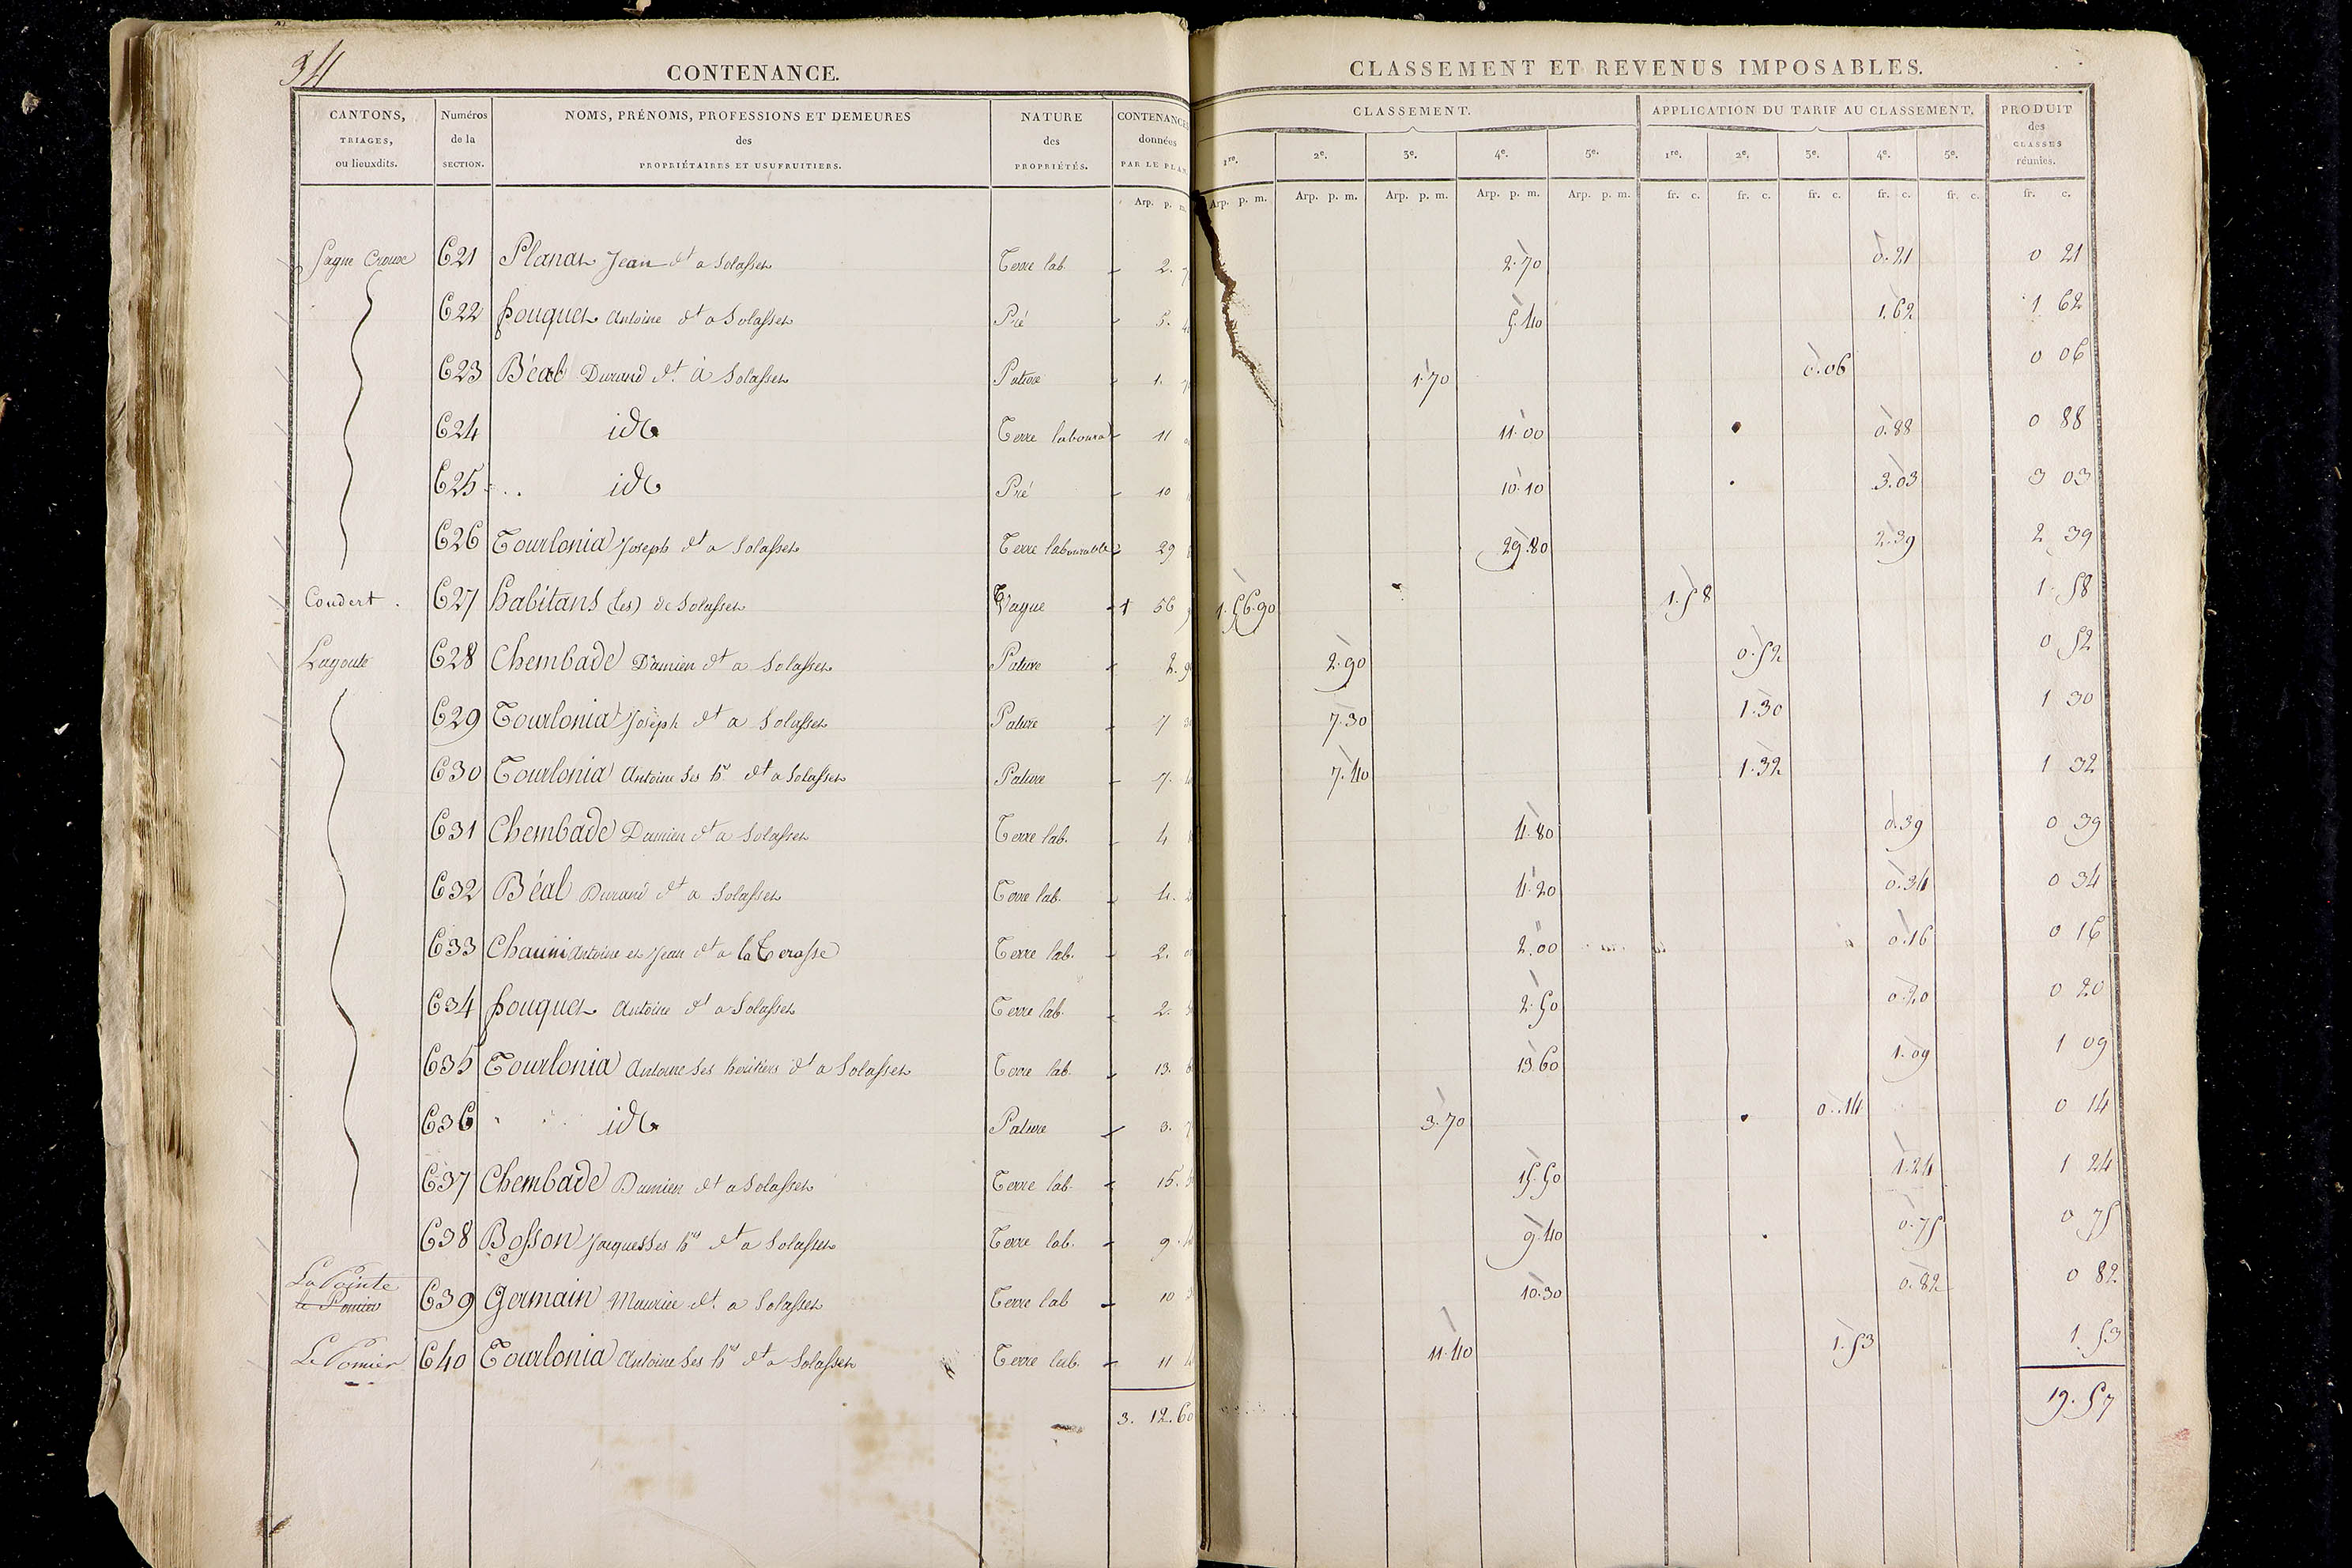 34
CONTENANCE. CLASSEMENT ET REVENUS IMPOSABLES.
CANTONS, TRIAGES, ou lieuxdits. Numéros de la SECTION. NOMS, PRÉNOMS, PROFESSIONS ET DEMEURES des PROPRIÉTAIRES ET USUFRUITIERS. NATURE des PROPRIÉTÉS. CONTENANCES données PAR LE PLAN. CLASSEMENT. APPLICATION DU TARIF AU CLASSEMENT. PRODUIT des CLASSES réunies.
1re. 2e. 3e. 4e. 5e. 1re. 2e. 3e. 4e. 5e.
Arp. p. m. Arp. p. m. Arp. p. m. Arp. p. m. Arp. p. m. Arp. p. m. fr. c. fr. c. fr. c. fr. c. fr. c. fr. c.
Sagne Crouse 621 Planat Jean dt a Solasset Terre lab. 2. 7 2.70 0.21 0 21
622 fouquet Antoine dt a Solasset Pré 5. 4 5.40 1.62 1 62
623 Béal Durand dt. à Solasset Pature 1. 7 1.70 0.06 0 06
624 id Terre labour 11 11.00 0.88 0 88
625 id Pré 10 10.10 3.03 3 03
626 Tourlonia Joseph dt a Solasset Terre labourable 29 29.80 2.39 2 39
Coudert. 627 habitans (les) de Solasset Vague 1 56 1.56.90 1.58 1.58
Lagoute 628 Chembade Damien dt a Solasset Pature 2.9 2.90 0.52 0 52
629 Tourlonia Joseph dt a Solasset Pature 7 7.30 1.30 1 30
630 Tourlonia Antoine Ses hrs dt a Solasset Pature 7. 7.40 1.32 1 32
631 Chembade Damien dt a Solasset Terre lab. 4 4.80 0.39 0 39
632 Béal Durand dt a Solasset Terre lab. 4. 4.20 0.34 0 34
633 Chauni Antoine et Jean dt a la Terasse Terre lab. 2. 2.00 0.16 0 16
634 fouquet Antoine dt a Solasset Terre lab. 2. 2.50 0.20 0 20
635 Tourlonia Antoine Ses héritiers dt a Solasset Terre lab. 13. 6 13.60 1.09 1 09
636 id Pature 3. 7 3.70 0.14 0 14
637 Chembade Damien dt a Solasset Terre lab. 15. 15.50 1.24 1 24
638 Bosson Jacques Ses hrs dt a Solasset Terre lab. 9. 9.40 0.75 0 75
La Pointe
le Pomier 639 Germain Maurice dt. a Solasset Terre lab 10 10.30 0.82 0 82
Le Pomier 640 Tourlonia Antoine Ses hrs dt a Solasset Terre lab. 11 11.40 1.53 1.53
3. 12.60 19.57